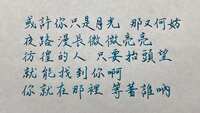 或許你只是月光 那又何妨
夜路漫長微微亮亮
彷徨的人 只要抬頭望
就能找到你啊
你就在那裡 等著誰吶